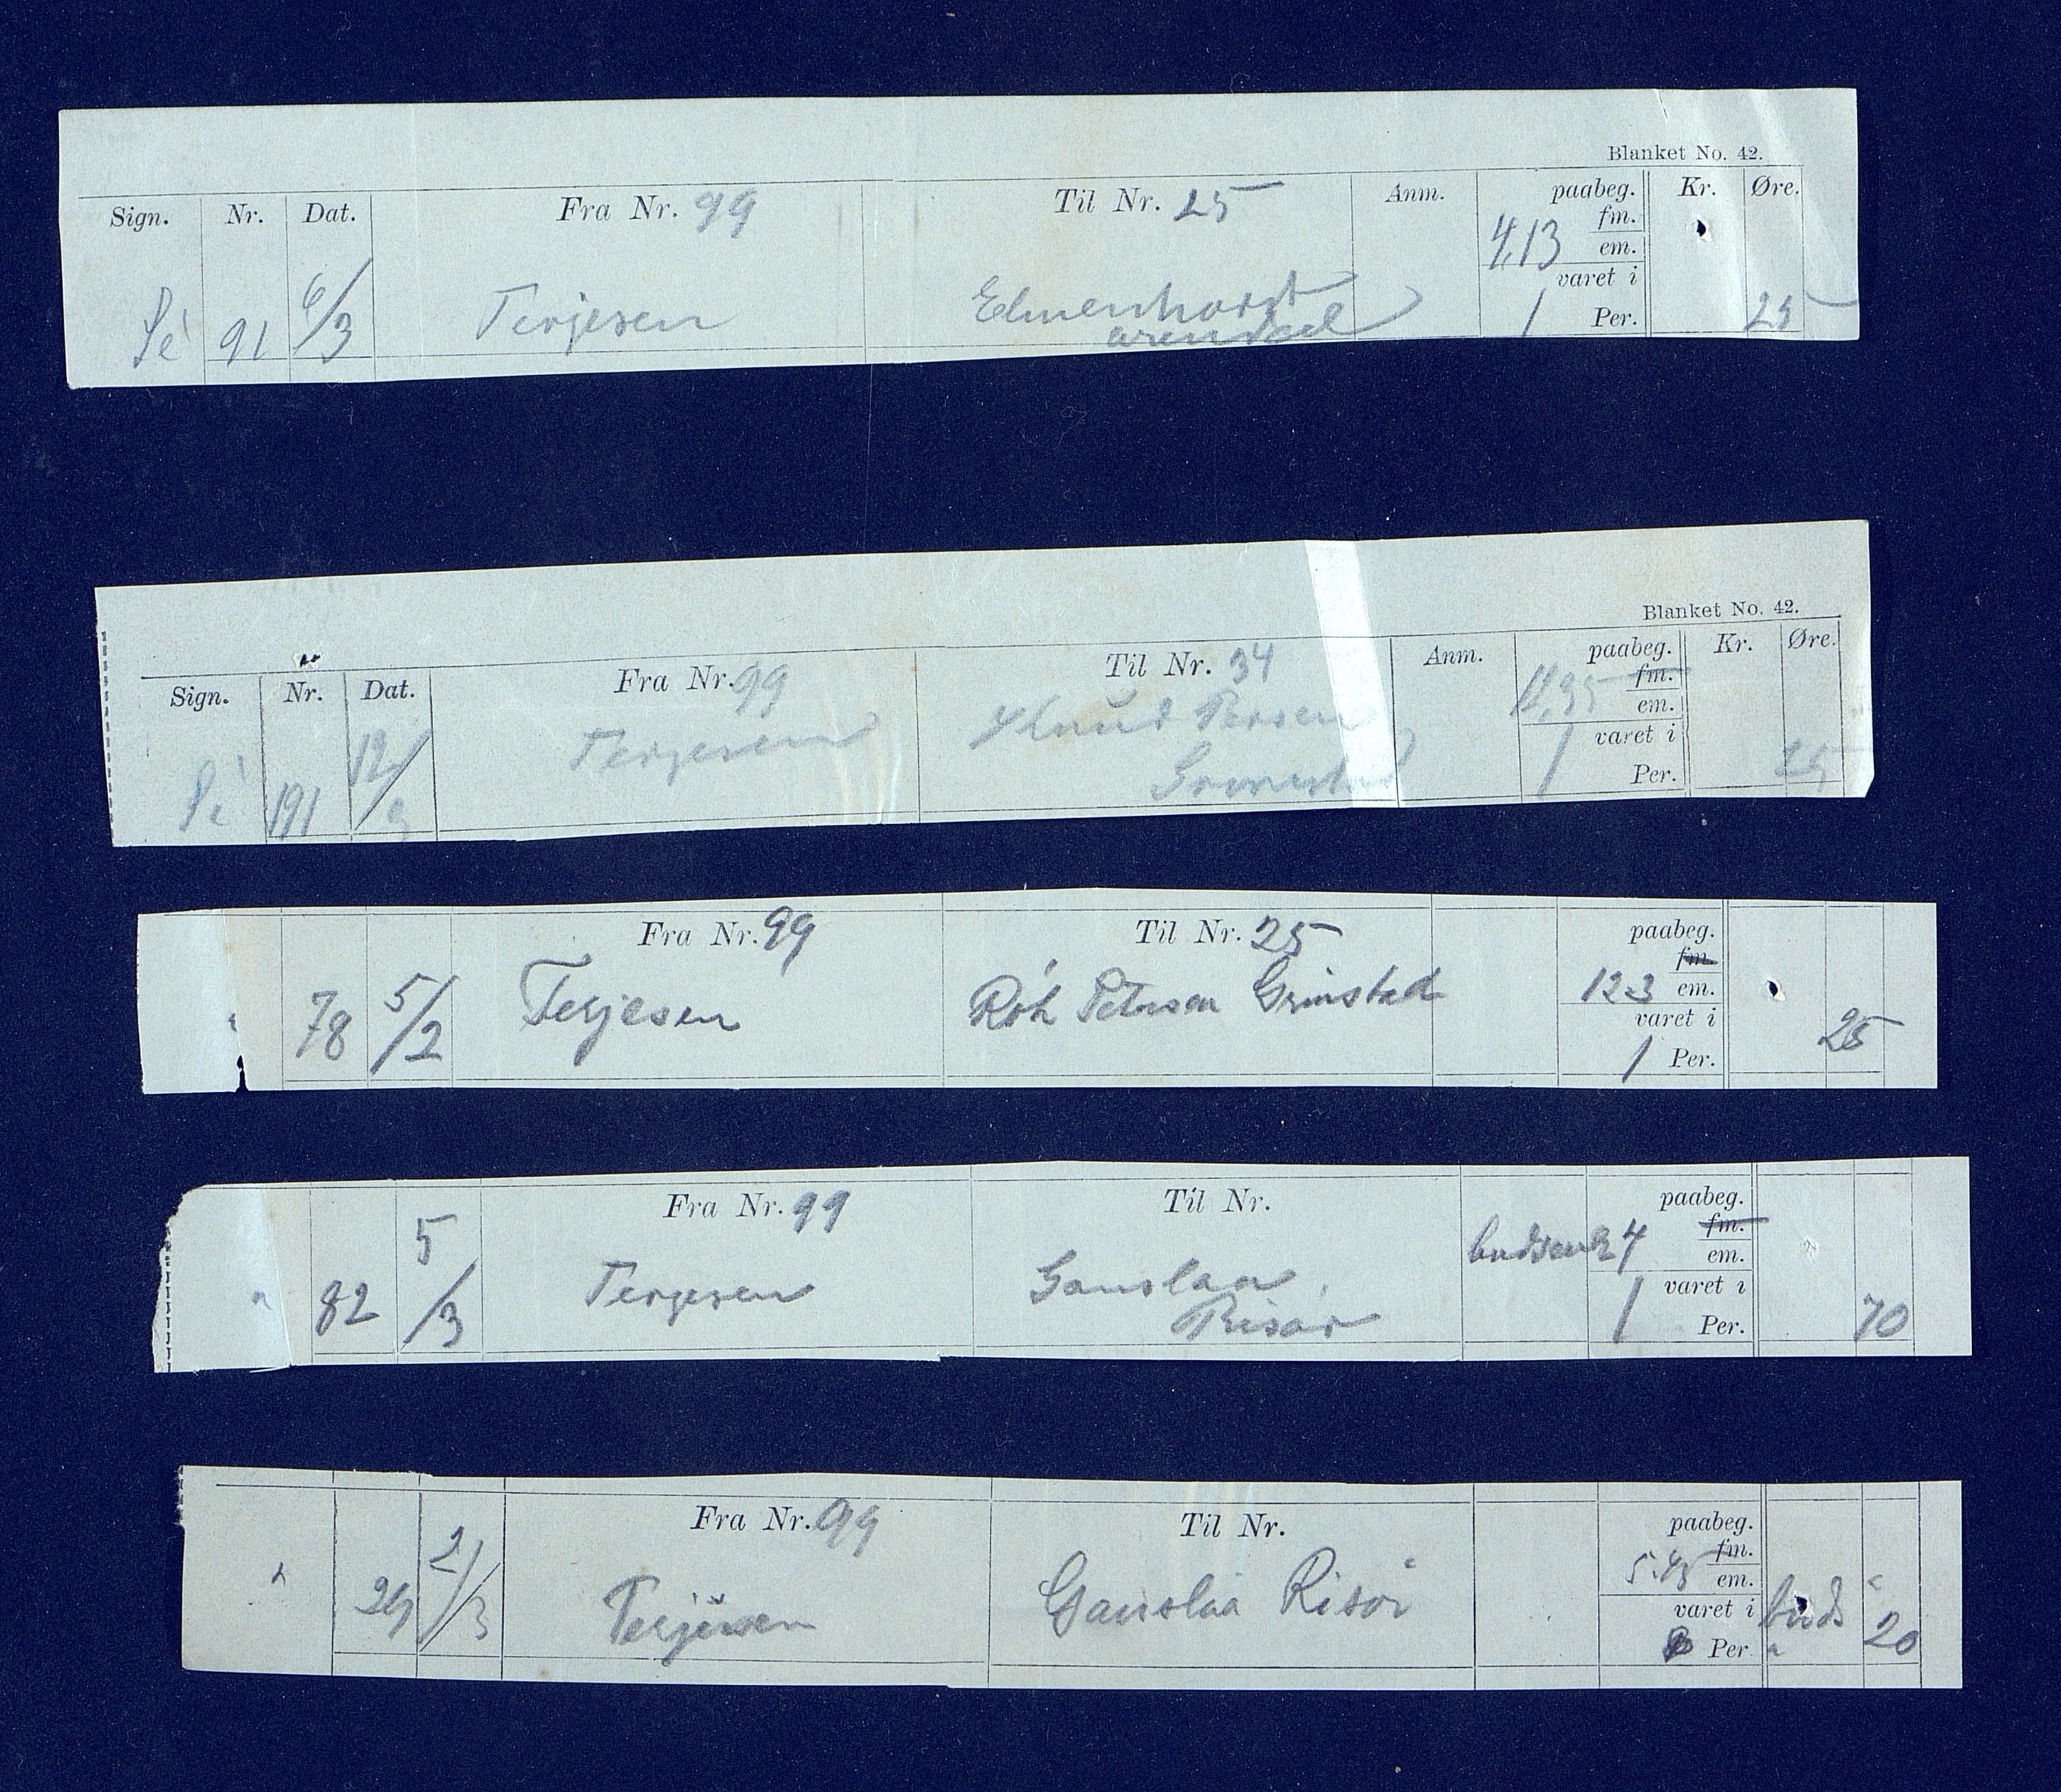 Blanket No. 42.
Sign. Nr. Dat. Fra Nr. 99 Til Nr. 25 Anm. paabeg. Kr. Øre.
fm.
4,13 em.
varet i
Sé 91 6/3 Terjesen Elmenhorst 1 Per. 25
arendal
Blanket No. 42.
Sign. Nr. Dat. Fra Nr. 99 Til Nr. 34 Anm. paabeg. Kr. Øre.
fm.
em.
varet i
Sé 191 12/ Terjesen Knud Persen 1 Per. 25
Fra Nr. 99 Til Nr. 25 paabeg.
fm.
12 3 em.
varet i
78 5/2 Terjesen Rök Petersen Grimstad 1 Per. 25
Fra Nr. 99 Til Nr. paabeg.
fm.
em.
varet i
82 5/3 Terjesen Ganslaa 1 Per. 70
Risör
Fra Nr. 99 Til Nr. paabeg.
fm.
em.
varet i
2/3 Terjesen Ganslaa Risör Per buds 20